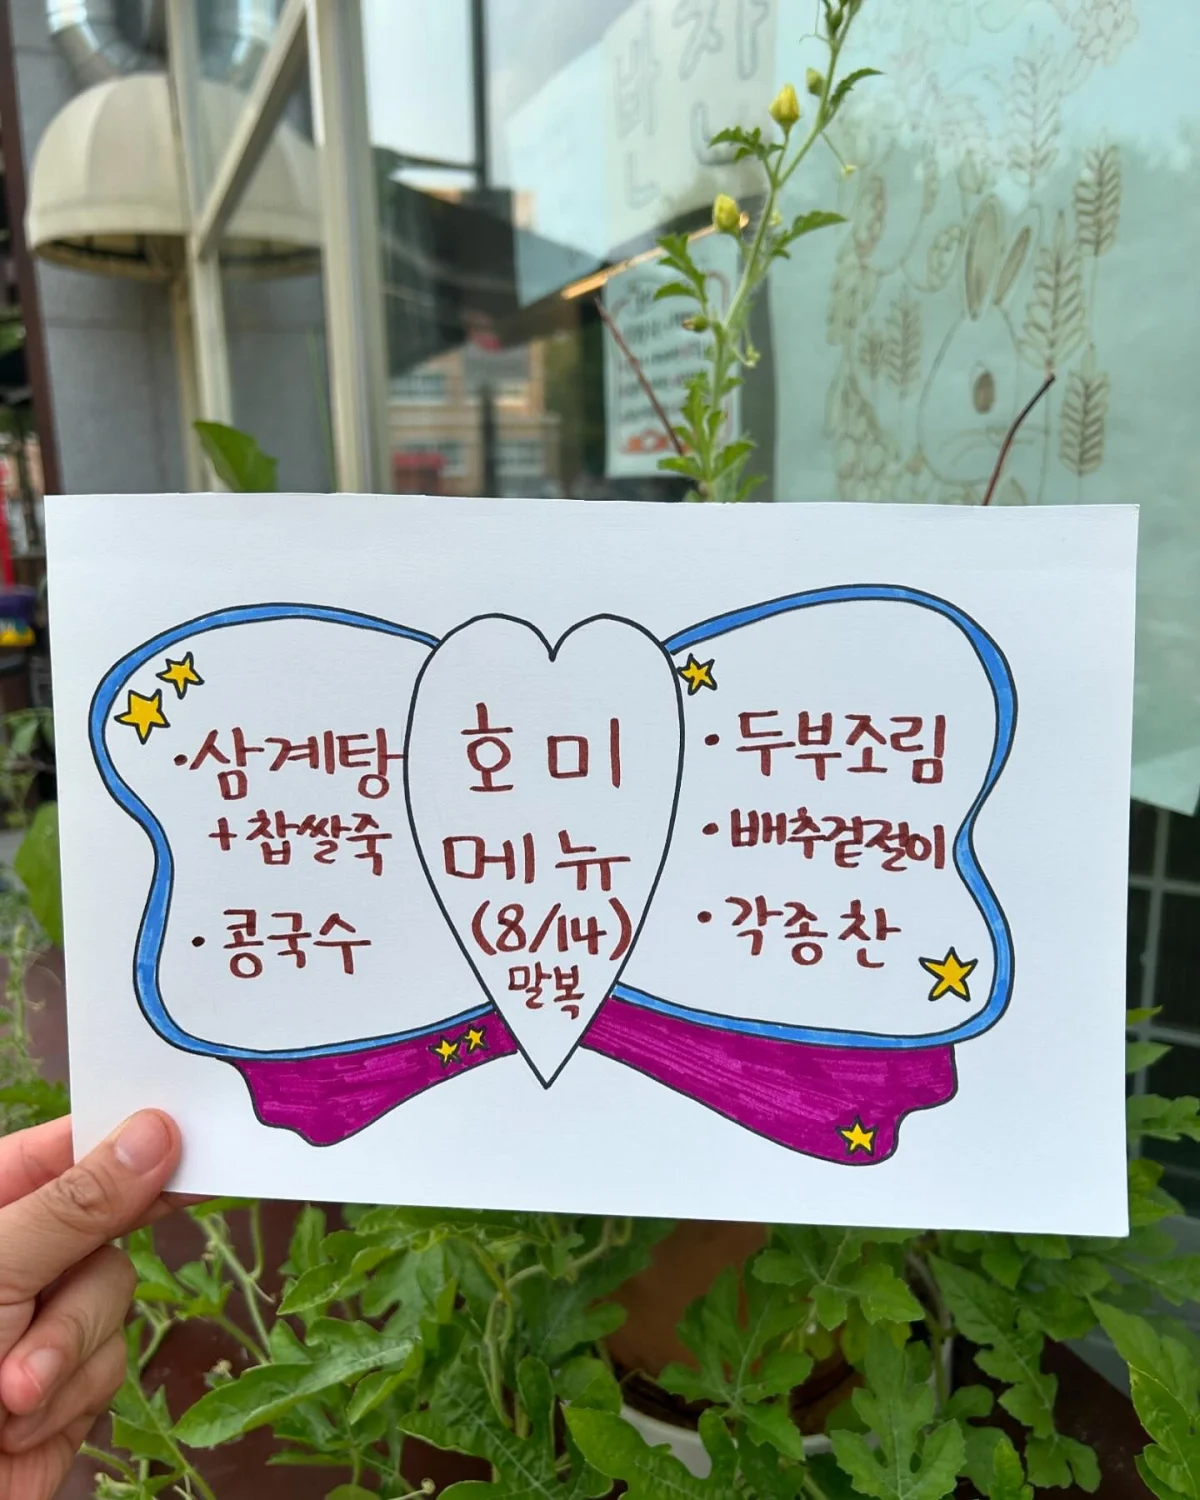 반찬
·삼계탕
+찹쌀죽
·콩국수
호미
메뉴
(8/14)
말복
·두부조림
·배추겉절이
·각종찬